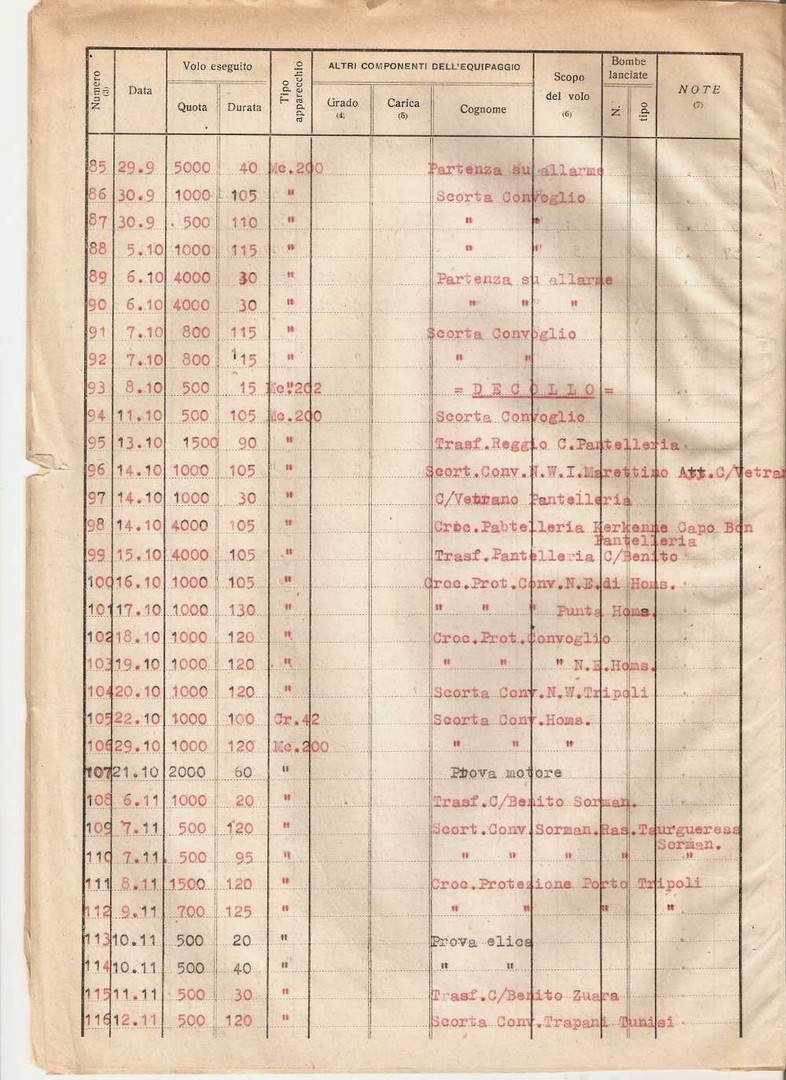 Numero (3) Data Volo eseguito Quota Durata Tipo apparecchio ALTRI COMPONENTI DELL'EQUIPAGGIO Grado (4) Carica (5) Cognome Scopo del volo (6) Bombe lanciate N. tipo NOTE (7)
85 29.9 5000 40 Mc.200 Partenza su allarme
86 30.9 1000 105 " Scorta Convoglio
87 30.9 500 110 " " "
88 5.10 1000 115 " " "
89 6.10 4000 30 " Partenza su allarme
90 6.10 4000 30 " " " "
91 7.10 800 115 " Scorta Convoglio
92 7.10 800 115 " " "
93 8.10 500 15 Mc.202 = D E C O L L O =
94 11.10 500 105 Mc.200 Scorta Convoglio
95 13.10 1500 90 " Trasf.Reggio C.Pantelleria
96 14.10 1000 105 " Scort.Conv.N.W.I.Marettimo Att.C/Vetran
97 14.10 1000 30 " C/Vetrano Pantelleria
98 14.10 4000 105 " Croc.Pabtelleria Kerkenne Capo Bon
Pantelleria
99 15.10 4000 105 " Trasf.Pantelleria C/Benito
100 16.10 1000 105 " Croc.Prot.Conv.N.E.di Homs.
101 17.10 1000 130 " " " " Punta Homs.
102 18.10 1000 120 " Croc.Prot.Convoglio
103 19.10 1000 120 " " " " N.E.Homs.
104 20.10 1000 120 " Scorta Conv.N.W.Tripoli
105 22.10 1000 100 Cr.42 Scorta Conv.Homs.
106 29.10 1000 120 Mc.200 " " "
107 21.10 2000 60 " Prova motore
108 6.11 1000 20 " Trasf.C/Benito Sorman.
109 7.11 500 120 " Scort.Conv.Sorman.Ras.Taurgueress
Sorman.
110 7.11 500 95 " " " " " "
111 8.11 1500 120 " Croc.Protezione Porto Tripoli
112 9.11 700 125 " " " " "
113 10.11 500 20 " Prova elica
114 10.11 500 40 " " "
115 11.11 500 30 " Trasf.C/Benito Zuara
116 12.11 500 120 " Scorta Conv.Trapani Tunisi